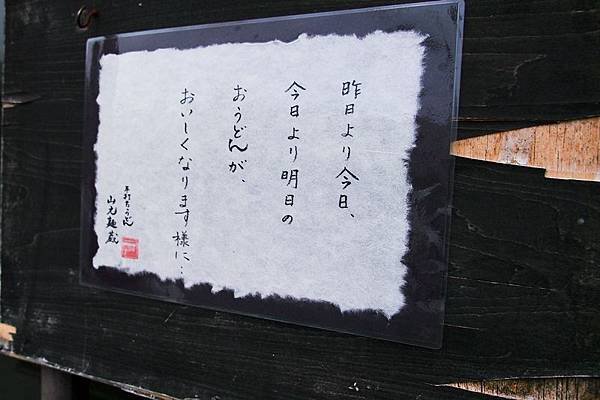 昨日より今日、
今日より明日の
おうどんが、
おいしくなります様に…
手打ちうどん
山元麺蔵